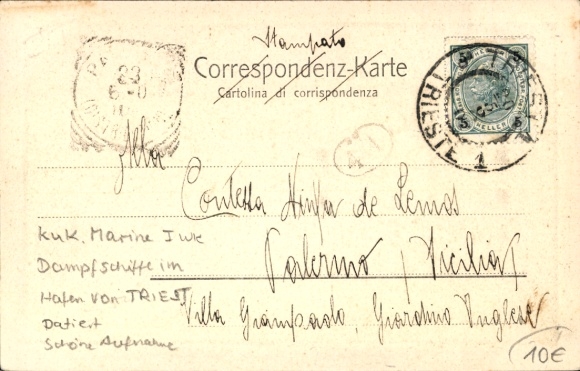 Stampato
Correspondenz-Karte
Cartolina di corrispondenza
23
TRIEST
TRIESTE
1
5 HELLER 5
41
Alla
Contessa Ninfa de Lemos
Palermo, Sicilia
Villa Giampaolo, Giardino Inglese
KuK. Marine I WK
Dampfschiffe im
Hafen von TRIEST
Datiert
Schöne Aufnahme
10€